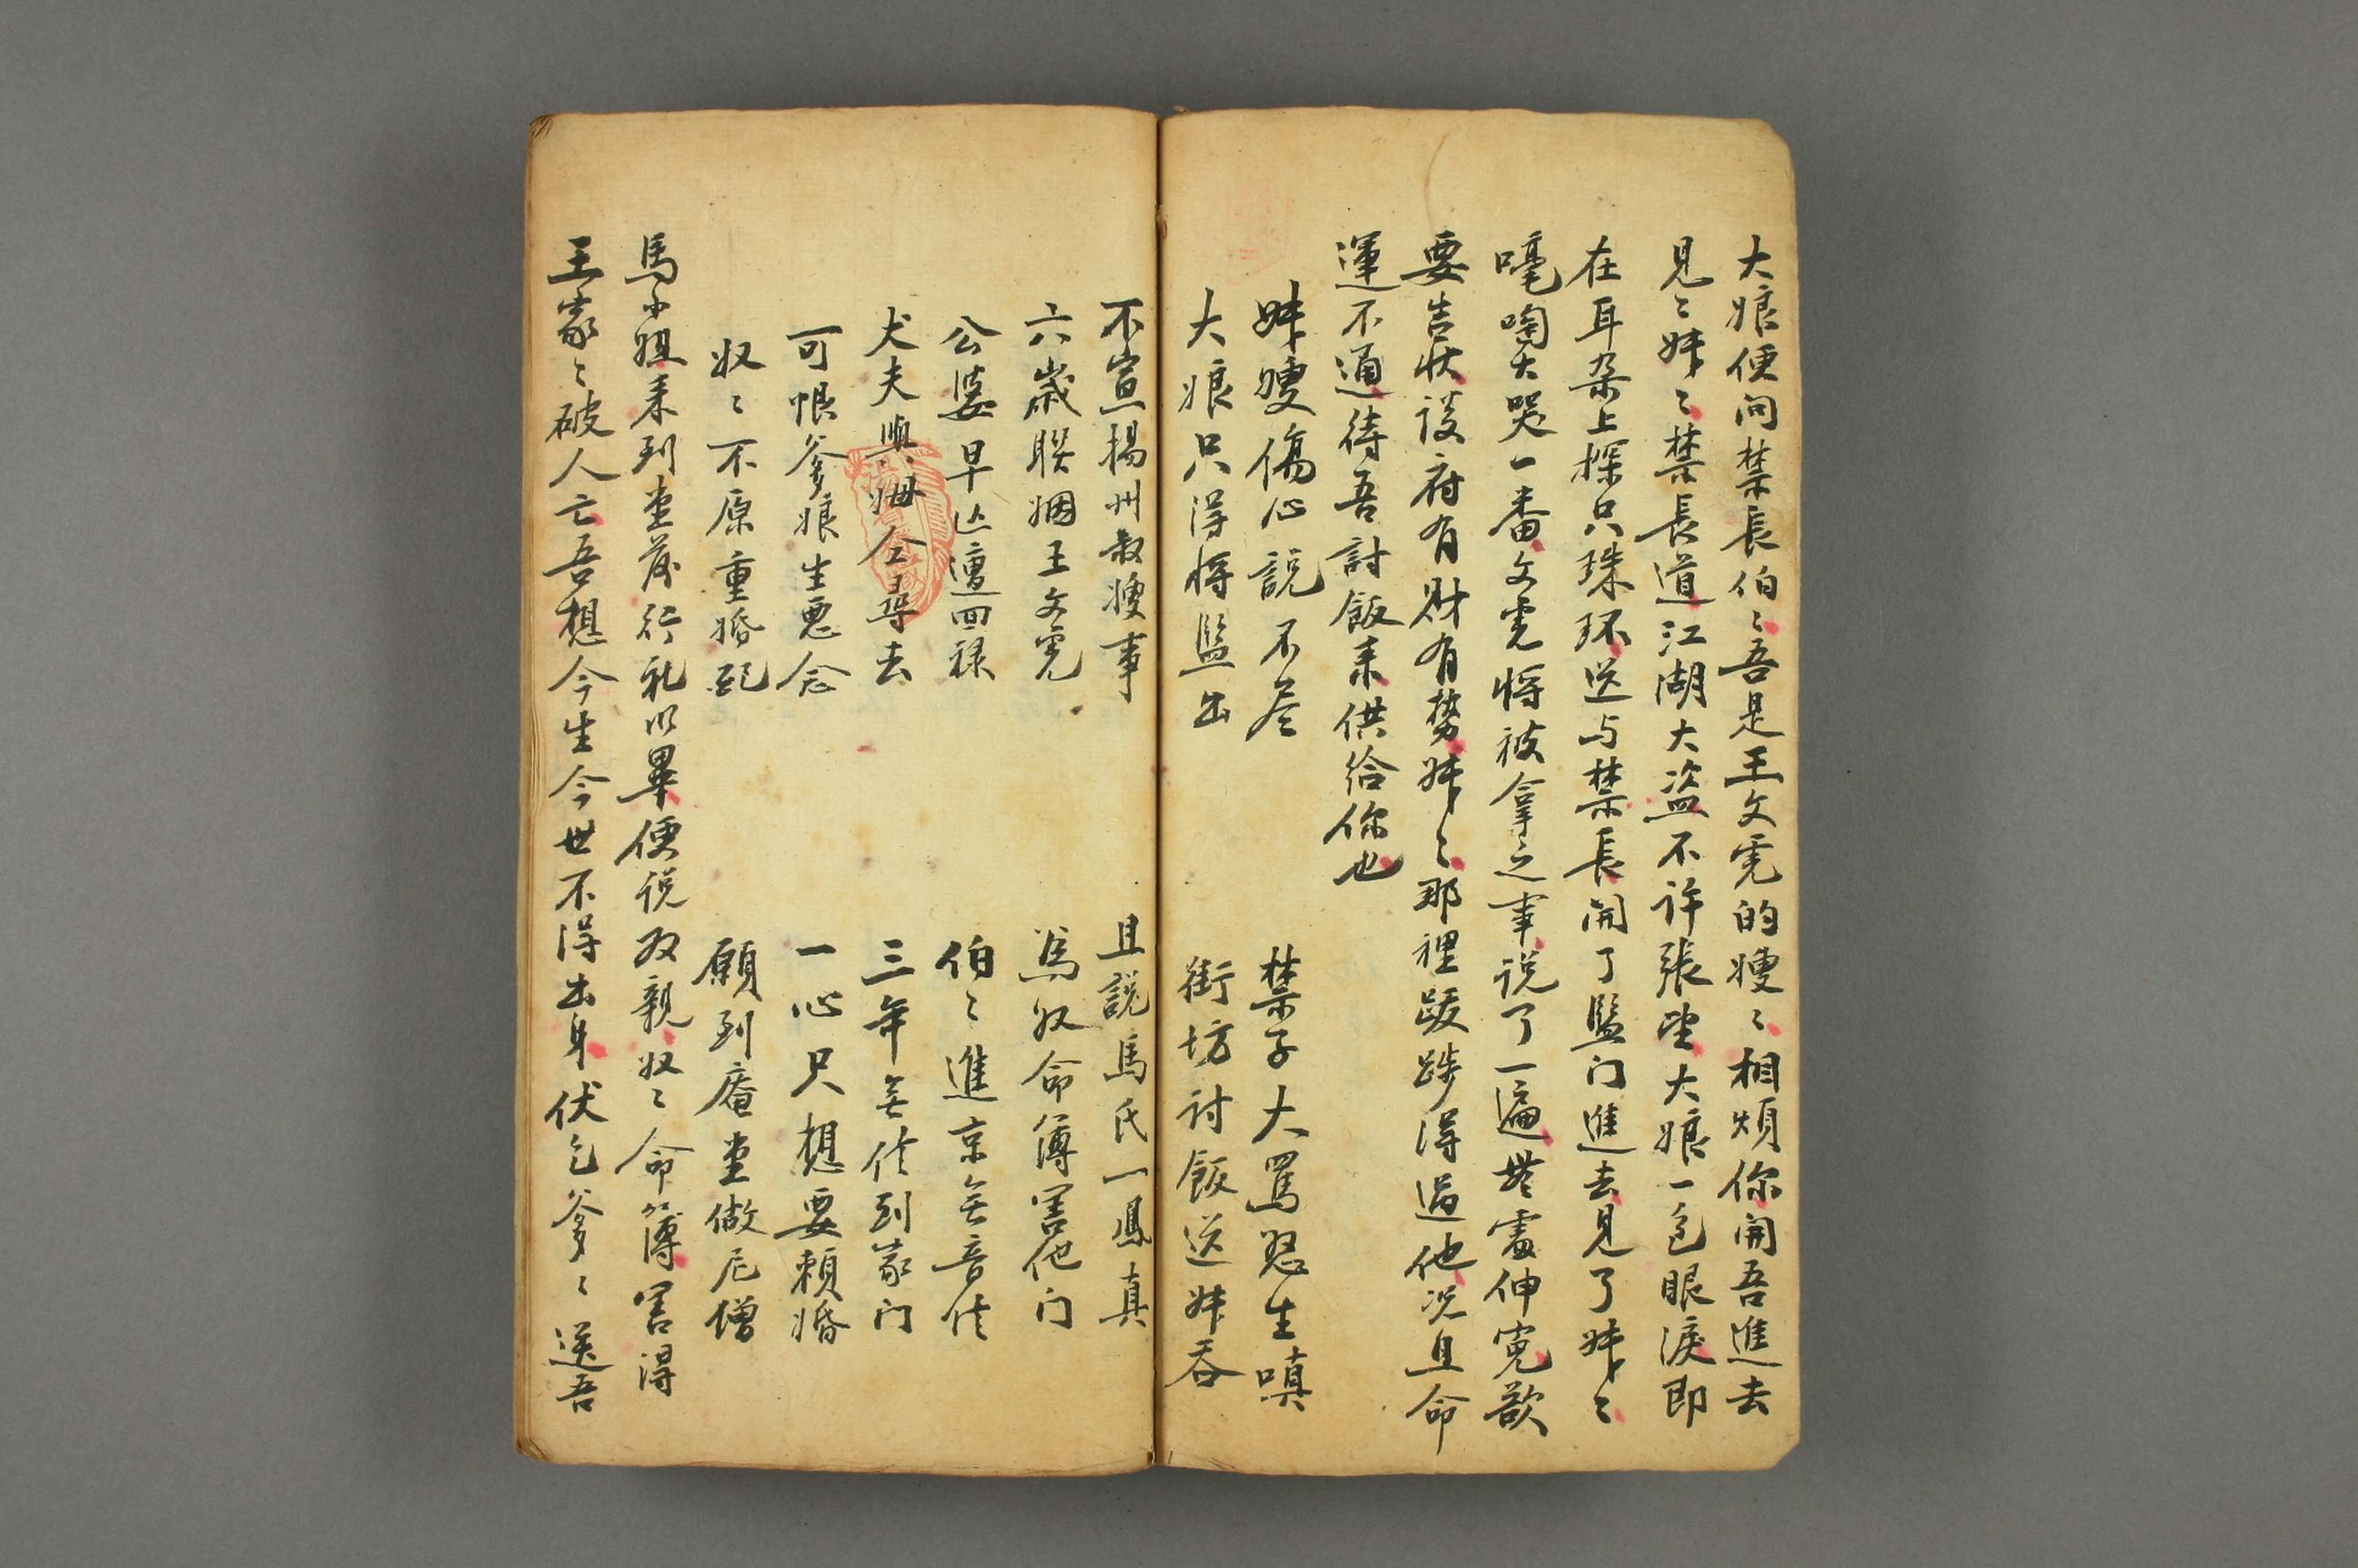 大娘便问禁長伯〻吾是王文寃的嫂〻相煩你開吾進去
見〻妹〻禁長道江湖大盗不许張望大娘一包眼淚即
在耳朶上探只珠环送与禁長開了監门進去見了妹〻
嚎啕大哭一番文寃将被拿之事说了一遍無處伸寃欲
要告状误府有財有勢妹〻那裡跋踄得過他况且命
運不通待吾討飯来供给你也
妹嫂傷心説不尽 禁子大罵怒生嗔
大娘只得将監出 街坊讨飯送妹吞
不宣揚州叔嫂事 且説馬氏一鳳真
六歲联姻王文寃 為奴命薄害他门
公婆早亡遭回禄 伯〻進京無音信
丈夫與姆仝尋去 三年無信到家门
可恨爹娘生惡念 一心只想要賴婚
奴〻不原重婚配 願到庵堂做尼僧
馬小姐来到堂前行礼以畢便说双親奴〻命薄害得
王家〻破人亡吾想今生今世不得出身伏乞爹〻送吾